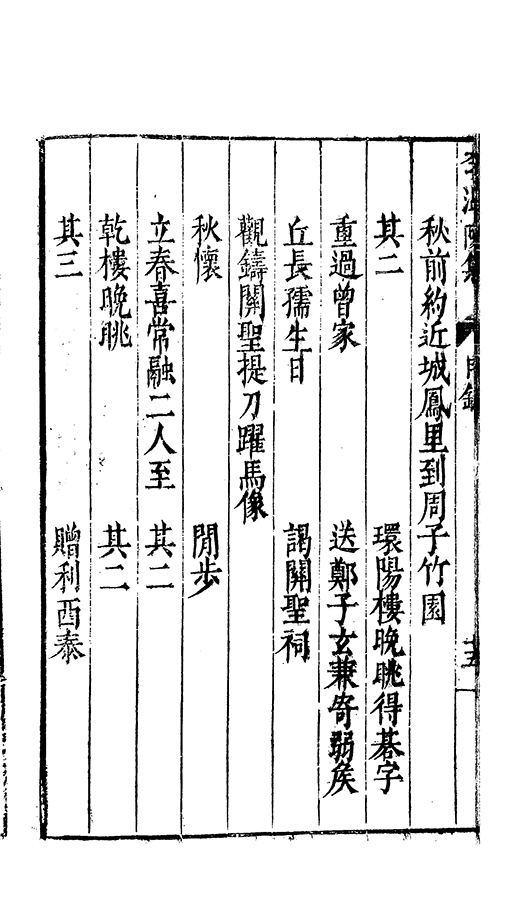 秋前約近城鳳里到周子竹園
其二　環陽樓晚眺得碁字
重過曾家　送鄭子玄兼寄弱侯
丘長孺生日　謁關聖祠
觀鑄關聖提刀躍馬像
秋懷　閒步
立春喜常融二人至　其二
乾樓晚眺　其二
其三　贈利西泰